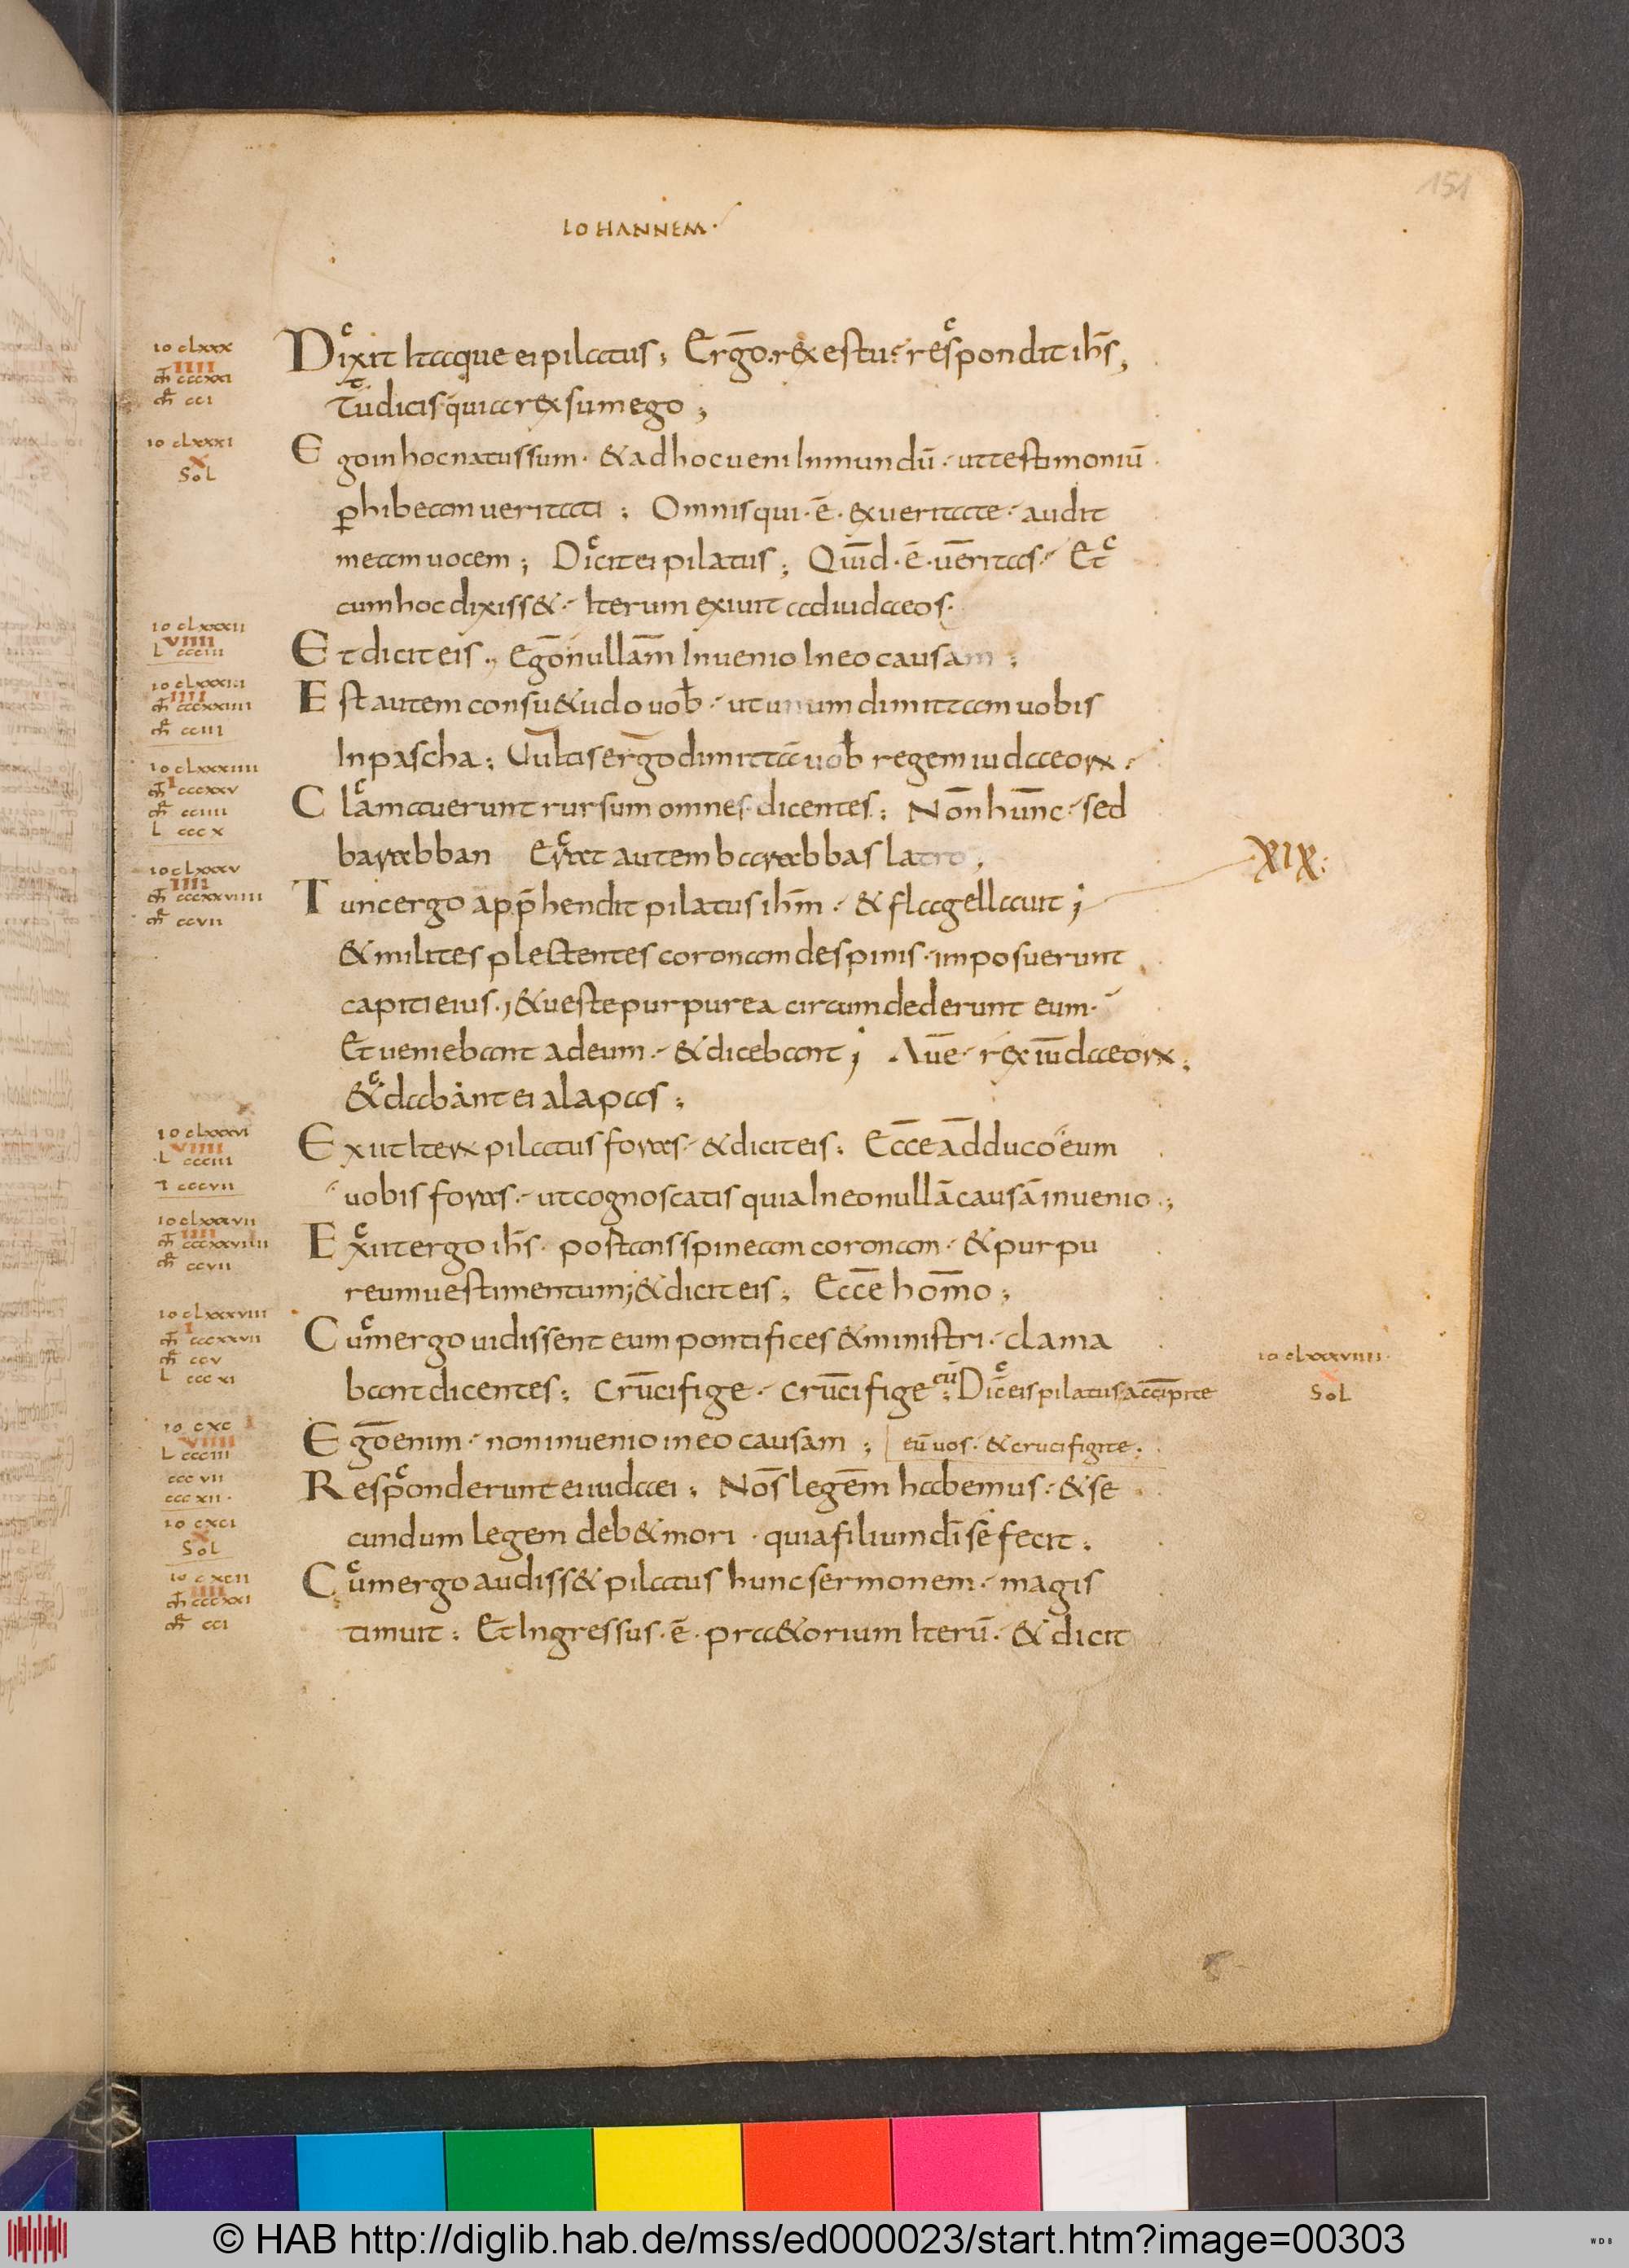 151
IOHANNEM·
Dixit Itaque ei pilatus; Ergo rex es tu? respondit ihs̄,
Tu dicis quia rex sum ego;
Ego in hoc natus sum· & ad hoc ueni In mundū· ut testimoniū
ꝑhibeam ueritati; Omnis qui·ē·ex ueritate· audit
meam uocem; Dicit ei pilatus; Quid·ē·ueritas· Et
cum hoc dixiss&· Iterum exiuit ad iudaeos·
Et dicit eis; Ego nullam Inuenio In eo causam;
Est autem consu&udo uob̄· ut unum dimittam uobis
In pascha; Uultis ergo dimittā uob̄ regem iudaeoꝝ·
Clamauerunt rursum omnes dicentes; Non hunc· sed
barabban Erat autem barabbas latro;
XIX:
Tunc ergo app̄hendit pilatus ihm̄· & flagellauit;
& milites plectentes coronam de spinis· imposuerunt
capiti eius·; & ueste purpurea circumdederunt eum·
Et ueniebant ad eum· & dicebant; Aue· rex iudaeoꝝ;
& dabant ei alapas;
Exiit Iteꝝ pilatus foras· & dicit eis; Ecce adduco eum
uobis foras· ut cognoscatis quia In eo nullā causā inuenio;
Exiit ergo ihs̄· postans spineam coronam· & purpu
reum uestimentum; & dicit eis; Ecce homo;
Cum ergo uidissent eum pontifices & ministri· clama
bant dicentes; Crucifige· crucifige eū; Dic̄ eis pilatus accip̄ite
eū uos· & crucifigite·
Ego enim· non inuenio in eo causam;
Responderunt ei iudaei; Nos legem habemus· & se
cundum legem deb& mori· quia filium dī se fecit;
Cum ergo audiss& pilatus hunc sermonem· magis
timuit; Et Ingressus·ē·pra&orium Iterū· & dicit
io clxxx
IIII
m̄ cccxxi
m̄r cci
io clxxxi
X
SoL
io clxxxii
VIIII
L ccciii
io clxxxiii
IIII
m̄ cccxxiiii
m̄r cciii
io clxxxiiii
I
m̄ cccxxv
m̄r cciiii
L cccx
io clxxxv
IIII
m̄ cccxxviiii
m̄r ccvii
io clxxxvi
VIIII
L ccciii
cccvii
io clxxxvii
IIII
m̄ cccxxviiii
m̄r ccvii
io clxxxviii
I
m̄ cccxxvii
m̄r ccv
L cccxi
io clxxxviiii
X
SoL
io cxc
VIIII
L ccciii
cccvii
cccxii·
io cxci
X
SoL
io cxcii
IIII
m̄ cccxxi
m̄r cci
© HAB http://diglib.hab.de/mss/ed000023/start.htm?image=00303
WDB